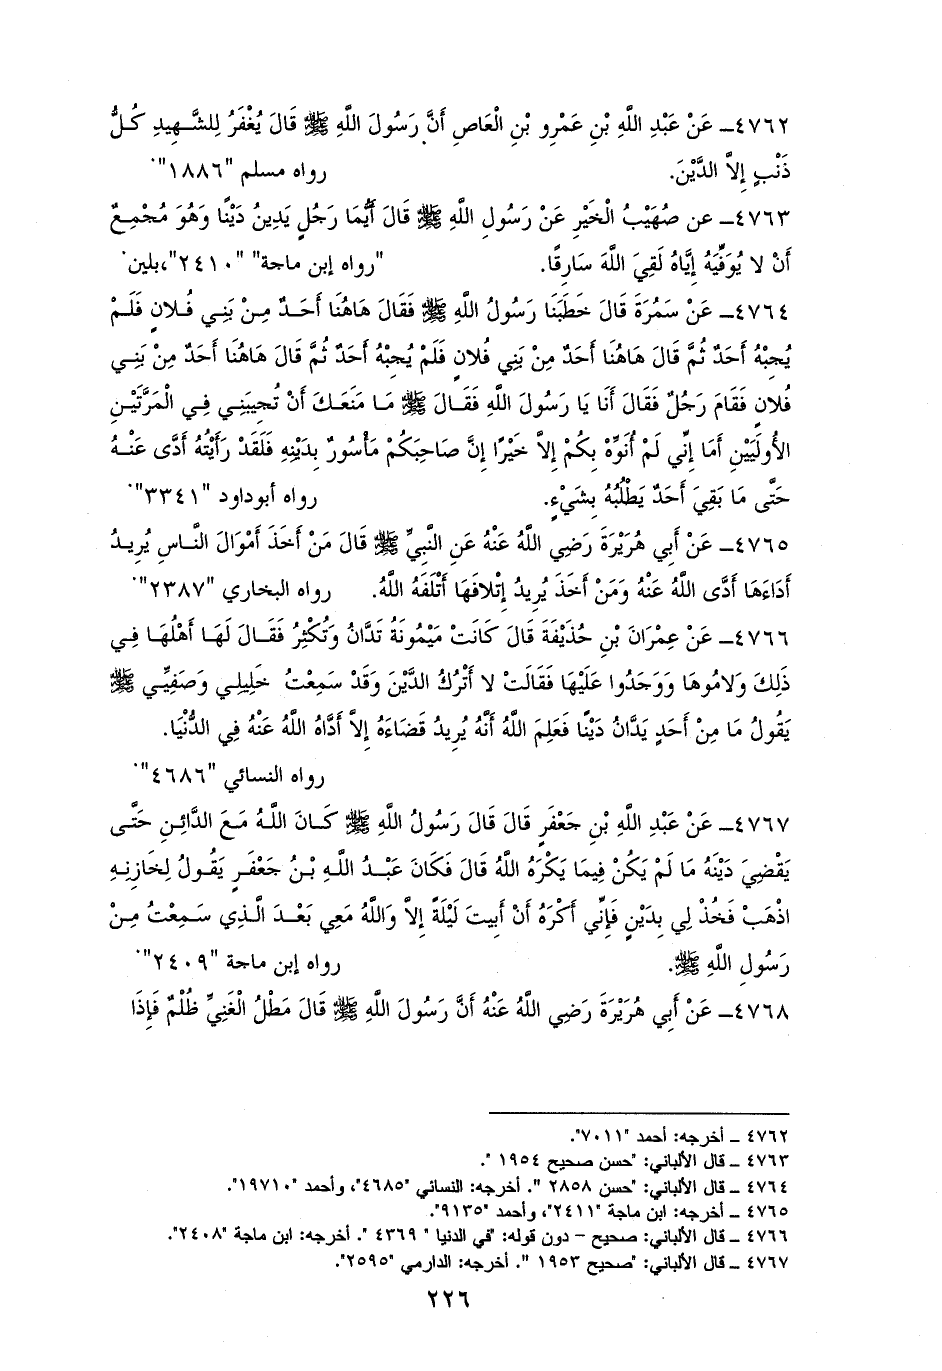 ٤٧٦٢ـ عَنْ عَبْدِ اللَّهِ بْنِ عَمْرِو بْنِ الْعَاصِ أَنَّ رَسُولَ اللَّهِ ﷺ قَالَ يُغْفَرُ لِلشَّهِيدِ كُلُّ
ذَنْبٍ إِلاَّ الدَّيْنَ. رواه مسلم "١٨٨٦".
٤٧٦٣ـ عن صُهَيْبُ الْخَيْرِ عَنْ رَسُولِ اللَّهِ ﷺ قَالَ أَيُّمَا رَجُلٍ يَدِينُ دَيْنًا وَهُوَ مُجْمِعٌ
أَنْ لا يُوَفِّيَهُ إِيَّاهُ لَقِيَ اللَّهَ سَارِقًا. "رواه إبن ماجة" "٢٤١٠"،بلين.
٤٧٦٤ـ عَنْ سَمُرَةَ قَالَ خَطَبَنَا رَسُولُ اللَّهِ ﷺ فَقَالَ هَاهُنَا أَحَدٌ مِنْ بَنِي فُلانٍ فَلَمْ
يُجِبْهُ أَحَدٌ ثُمَّ قَالَ هَاهُنَا أَحَدٌ مِنْ بَنِي فُلانٍ فَلَمْ يُجِبْهُ أَحَدٌ ثُمَّ قَالَ هَاهُنَا أَحَدٌ مِنْ بَنِي
فُلانٍ فَقَامَ رَجُلٌ فَقَالَ أَنَا يَا رَسُولَ اللَّهِ فَقَالَ ﷺ مَا مَنَعَكَ أَنْ تُجِيبَنِي فِي الْمَرَّتَيْنِ
الأُولَيَيْنِ أَمَا إِنِّي لَمْ أُنَوِّهْ بِكُمْ إِلاَّ خَيْرًا إِنَّ صَاحِبَكُمْ مَأْسُورٌ بِدَيْنِهِ فَلَقَدْ رَأَيْتُهُ أَدَّى عَنْهُ
حَتَّى مَا بَقِيَ أَحَدٌ يَطْلُبُهُ بِشَيْءٍ. رواه أبوداود "٣٣٤١".
٤٧٦٥ـ عَنْ أَبِي هُرَيْرَةَ رَضِي اللَّهُ عَنْهُ عَنِ النَّبِيِّ ﷺ قَالَ مَنْ أَخَذَ أَمْوَالَ النَّاسِ يُرِيدُ
أَدَاءَهَا أَدَّى اللَّهُ عَنْهُ وَمَنْ أَخَذَ يُرِيدُ إِتْلافَهَا أَتْلَفَهُ اللَّهُ. رواه البخاري "٢٣٨٧".
٤٧٦٦ـ عَنْ عِمْرَانَ بْنِ حُذَيْفَةَ قَالَ كَانَتْ مَيْمُونَةُ تَدَّانُ وَتُكْثِرُ فَقَالَ لَهَا أَهْلُهَا فِي
ذَلِكَ وَلامُوهَا وَوَجَدُوا عَلَيْهَا فَقَالَتْ لا أَتْرُكُ الدَّيْنَ وَقَدْ سَمِعْتُ خَلِيلِي وَصَفِيِّي ﷺ
يَقُولُ مَا مِنْ أَحَدٍ يَدَّانُ دَيْنًا فَعَلِمَ اللَّهُ أَنَّهُ يُرِيدُ قَضَاءَهُ إِلاَّ أَدَّاهُ اللَّهُ عَنْهُ فِي الدُّنْيَا.
رواه النسائي "٤٦٨٦".
٤٧٦٧ـ عَنْ عَبْدِ اللَّهِ بْنِ جَعْفَرٍ قَالَ قَالَ رَسُولُ اللَّهِ ﷺ كَانَ اللَّهُ مَعَ الدَّائِنِ حَتَّى
يَقْضِيَ دَيْنَهُ مَا لَمْ يَكُنْ فِيمَا يَكْرَهُ اللَّهُ قَالَ فَكَانَ عَبْدُ اللَّهِ بْنُ جَعْفَرٍ يَقُولُ لِخَازِنِهِ
اذْهَبْ فَخُذْ لِي بِدَيْنٍ فَإِنِّي أَكْرَهُ أَنْ أَبِيتَ لَيْلَةً إِلاَّ وَاللَّهُ مَعِي بَعْدَ الَّذِي سَمِعْتُ مِنْ
رَسُولِ اللَّهِ ﷺ. رواه إبن ماجة "٢٤٠٩".
٤٧٦٨ـ عَنْ أَبِي هُرَيْرَةَ رَضِي اللَّهُ عَنْهُ أَنَّ رَسُولَ اللَّهِ ﷺ قَالَ مَطْلُ الْغَنِيِّ ظُلْمٌ فَإِذَا
٤٧٦٢ ـ أخرجه: أحمد "٧٠١١".
٤٧٦٣ ـ قال الألباني: "حسن صحيح ١٩٥٤ ".
٤٧٦٤ ـ قال الألباني: "حسن ٢٨٥٨ ". أخرجه: النسائي "٤٦٨٥"، وأحمد "١٩٧١٠".
٤٧٦٥ ـ أخرجه: ابن ماجة "٢٤١١"، وأحمد "٩١٣٥".
٤٧٦٦ ـ قال الألباني: صحيح - دون قوله: "في الدنيا " ٤٣٦٩ ". أخرجه: ابن ماجة "٢٤٠٨".
٤٧٦٧ ـ قال الألباني: "صحيح ١٩٥٣ ". أخرجه: الدارمي "٢٥٩٥".
٢٢٦